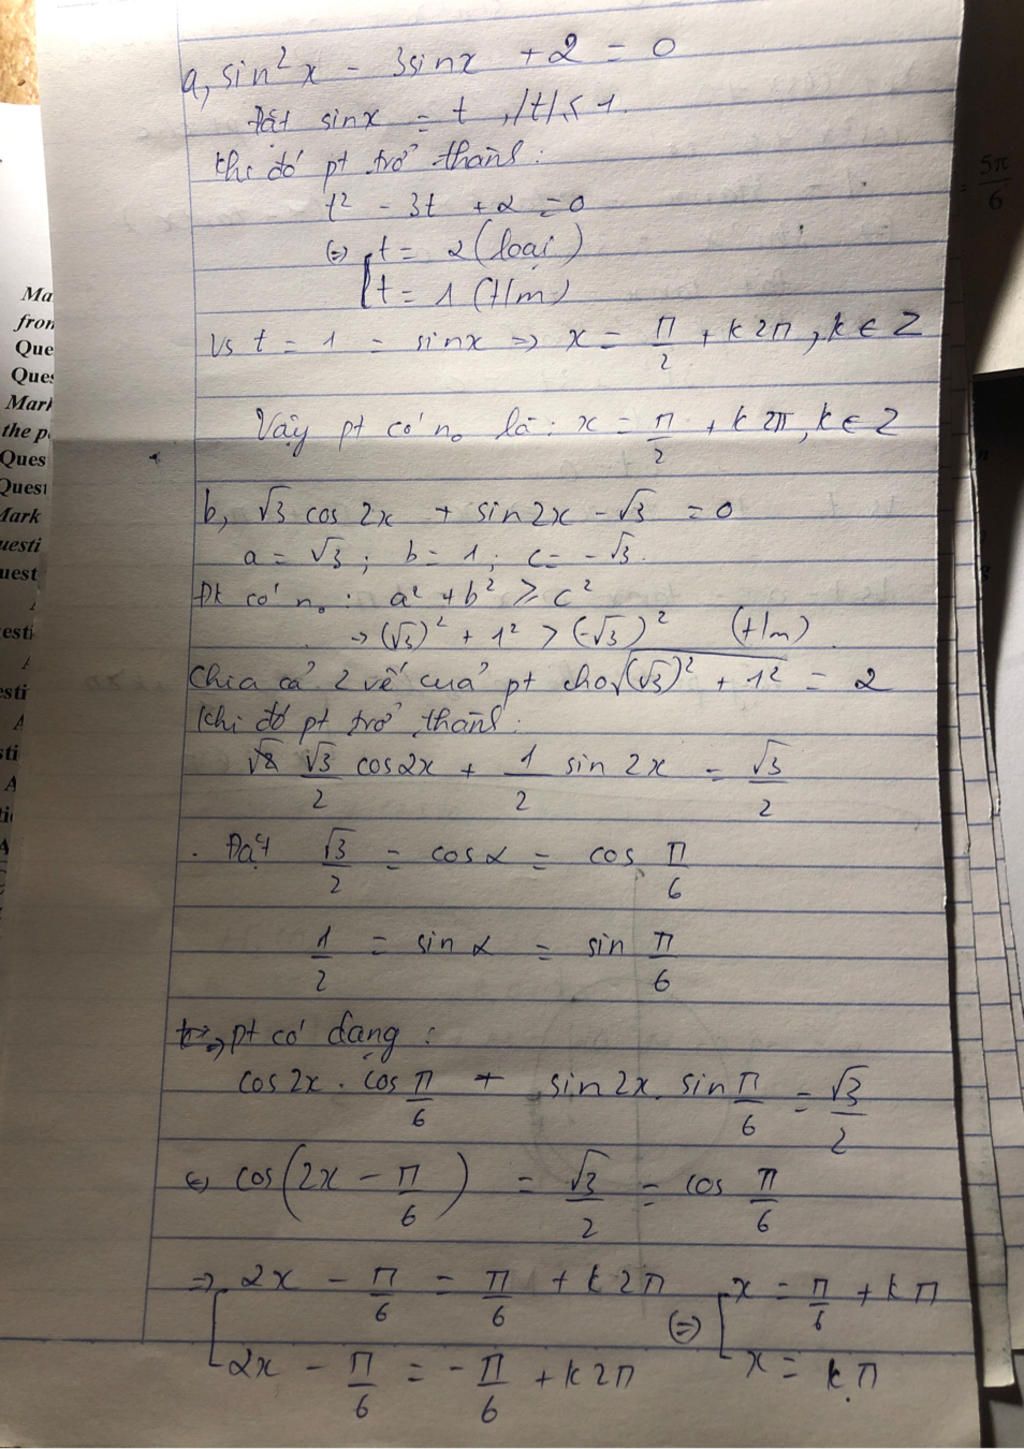 a, sin²x - 3sinx + 2 = 0
Đặt sinx = t, |t| ≤ 1.
Khi đó pt trở thành:
t² - 3t + 2 = 0
(=) [t = 2 (loại)
[t = 1 (t/m)
vs t = 1 = sinx => x = π/2 + k2π, k ∈ Z
Vậy pt có n₀ là: x = π/2 + k2π, k ∈ Z
b, √3 cos 2x + sin2x - √3 = 0
a = √3; b = 1; c = -√3.
Đk có n₀: a² + b² ≥ c²
-> (√3)² + 1² > (-√3)² (t/m)
Chia cả 2 vế của pt cho √((√3)² + 1²) = 2
Khi đó pt trở thành:
√3/2 cos2x + 1/2 sin 2x = √3/2
. Đặt √3/2 = cosα = cos π/6
1/2 = sin α = sin π/6
=> pt có dạng:
cos2x . cos π/6 + sin2x . sin π/6 = √3/2
(=) cos(2x - π/6) = √3/2 = cos π/6
=> [2x - π/6 = π/6 + k2π (=) [x = π/6 + kπ
[2x - π/6 = -π/6 + k2π [x = kπ
5π/6
Ma
from
Que
Ques
Mark
the p
Ques
Quest
Mark
uesti
uest
esti
esti
sti
A